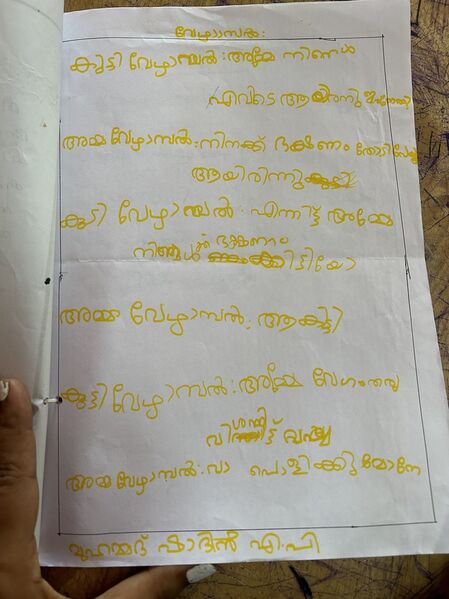 വേഴാമ്പൽ:
കുട്ടി വേഴാമ്പൽ: അമ്മേ നിങൾ
എവിടെ ആയിരന്നു
അമ്മ വേഴാമ്പൽ: നിനക്ക് ഭക്ഷണം തേടി
ആയിരിന്നു
കുടി വേഴാമ്പൽ: എന്നിട്ട് അമ്മേ
നിങ്ങൾക്ക് ഭക്ഷണം കിട്ടിയോ
അമ്മ വേഴാമ്പൽ:
കുട്ടി വേഴാമ്പൽ: അമ്മേ വേഗം തരു
വിശന്നിട്ട് വയ്യ
അമ്മ വേഴാമ്പൽ: വാ പൊളിക്കു മോനേ
മുഹമ്മദ് ഷാദിൽ എ.പി